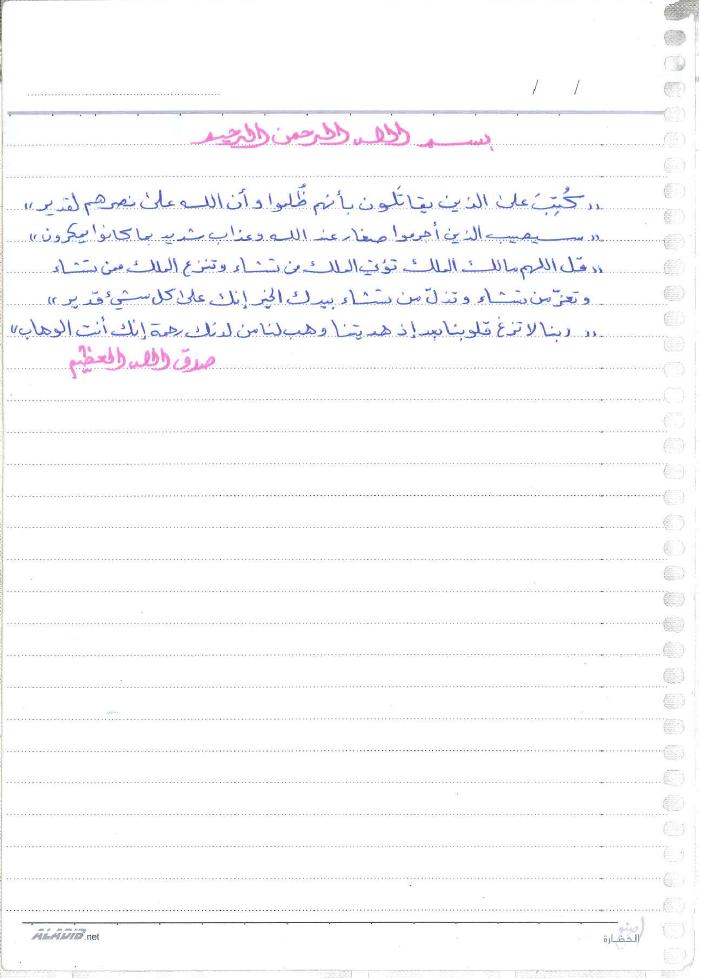 / /
بسم الله الرحمن الرحيم
,, كُتِبَ على الذين يقاتَلون بأنهم ظُلموا و أن الله على نصرهم لقدير ,,
,, سيصيب الذين أجرموا صغار عند الله وعذاب شديد بما كانوا يمكرون ,,
,, قل اللهم مالك الملك تؤتي الملك من تشاء وتنزع الملك ممن تشاء
و تعزّ من تشاء و تذلّ من تشاء بيدك الخير إنك على كل شيئ قدير ,,
,, ربنا لا تزغ قلوبنا بعد إذ هديتنا وهب لنا من لدنك رحمة إنك أنت الوهاب ,,
صدق الله العظيم
ALADIB.net
الحضارة